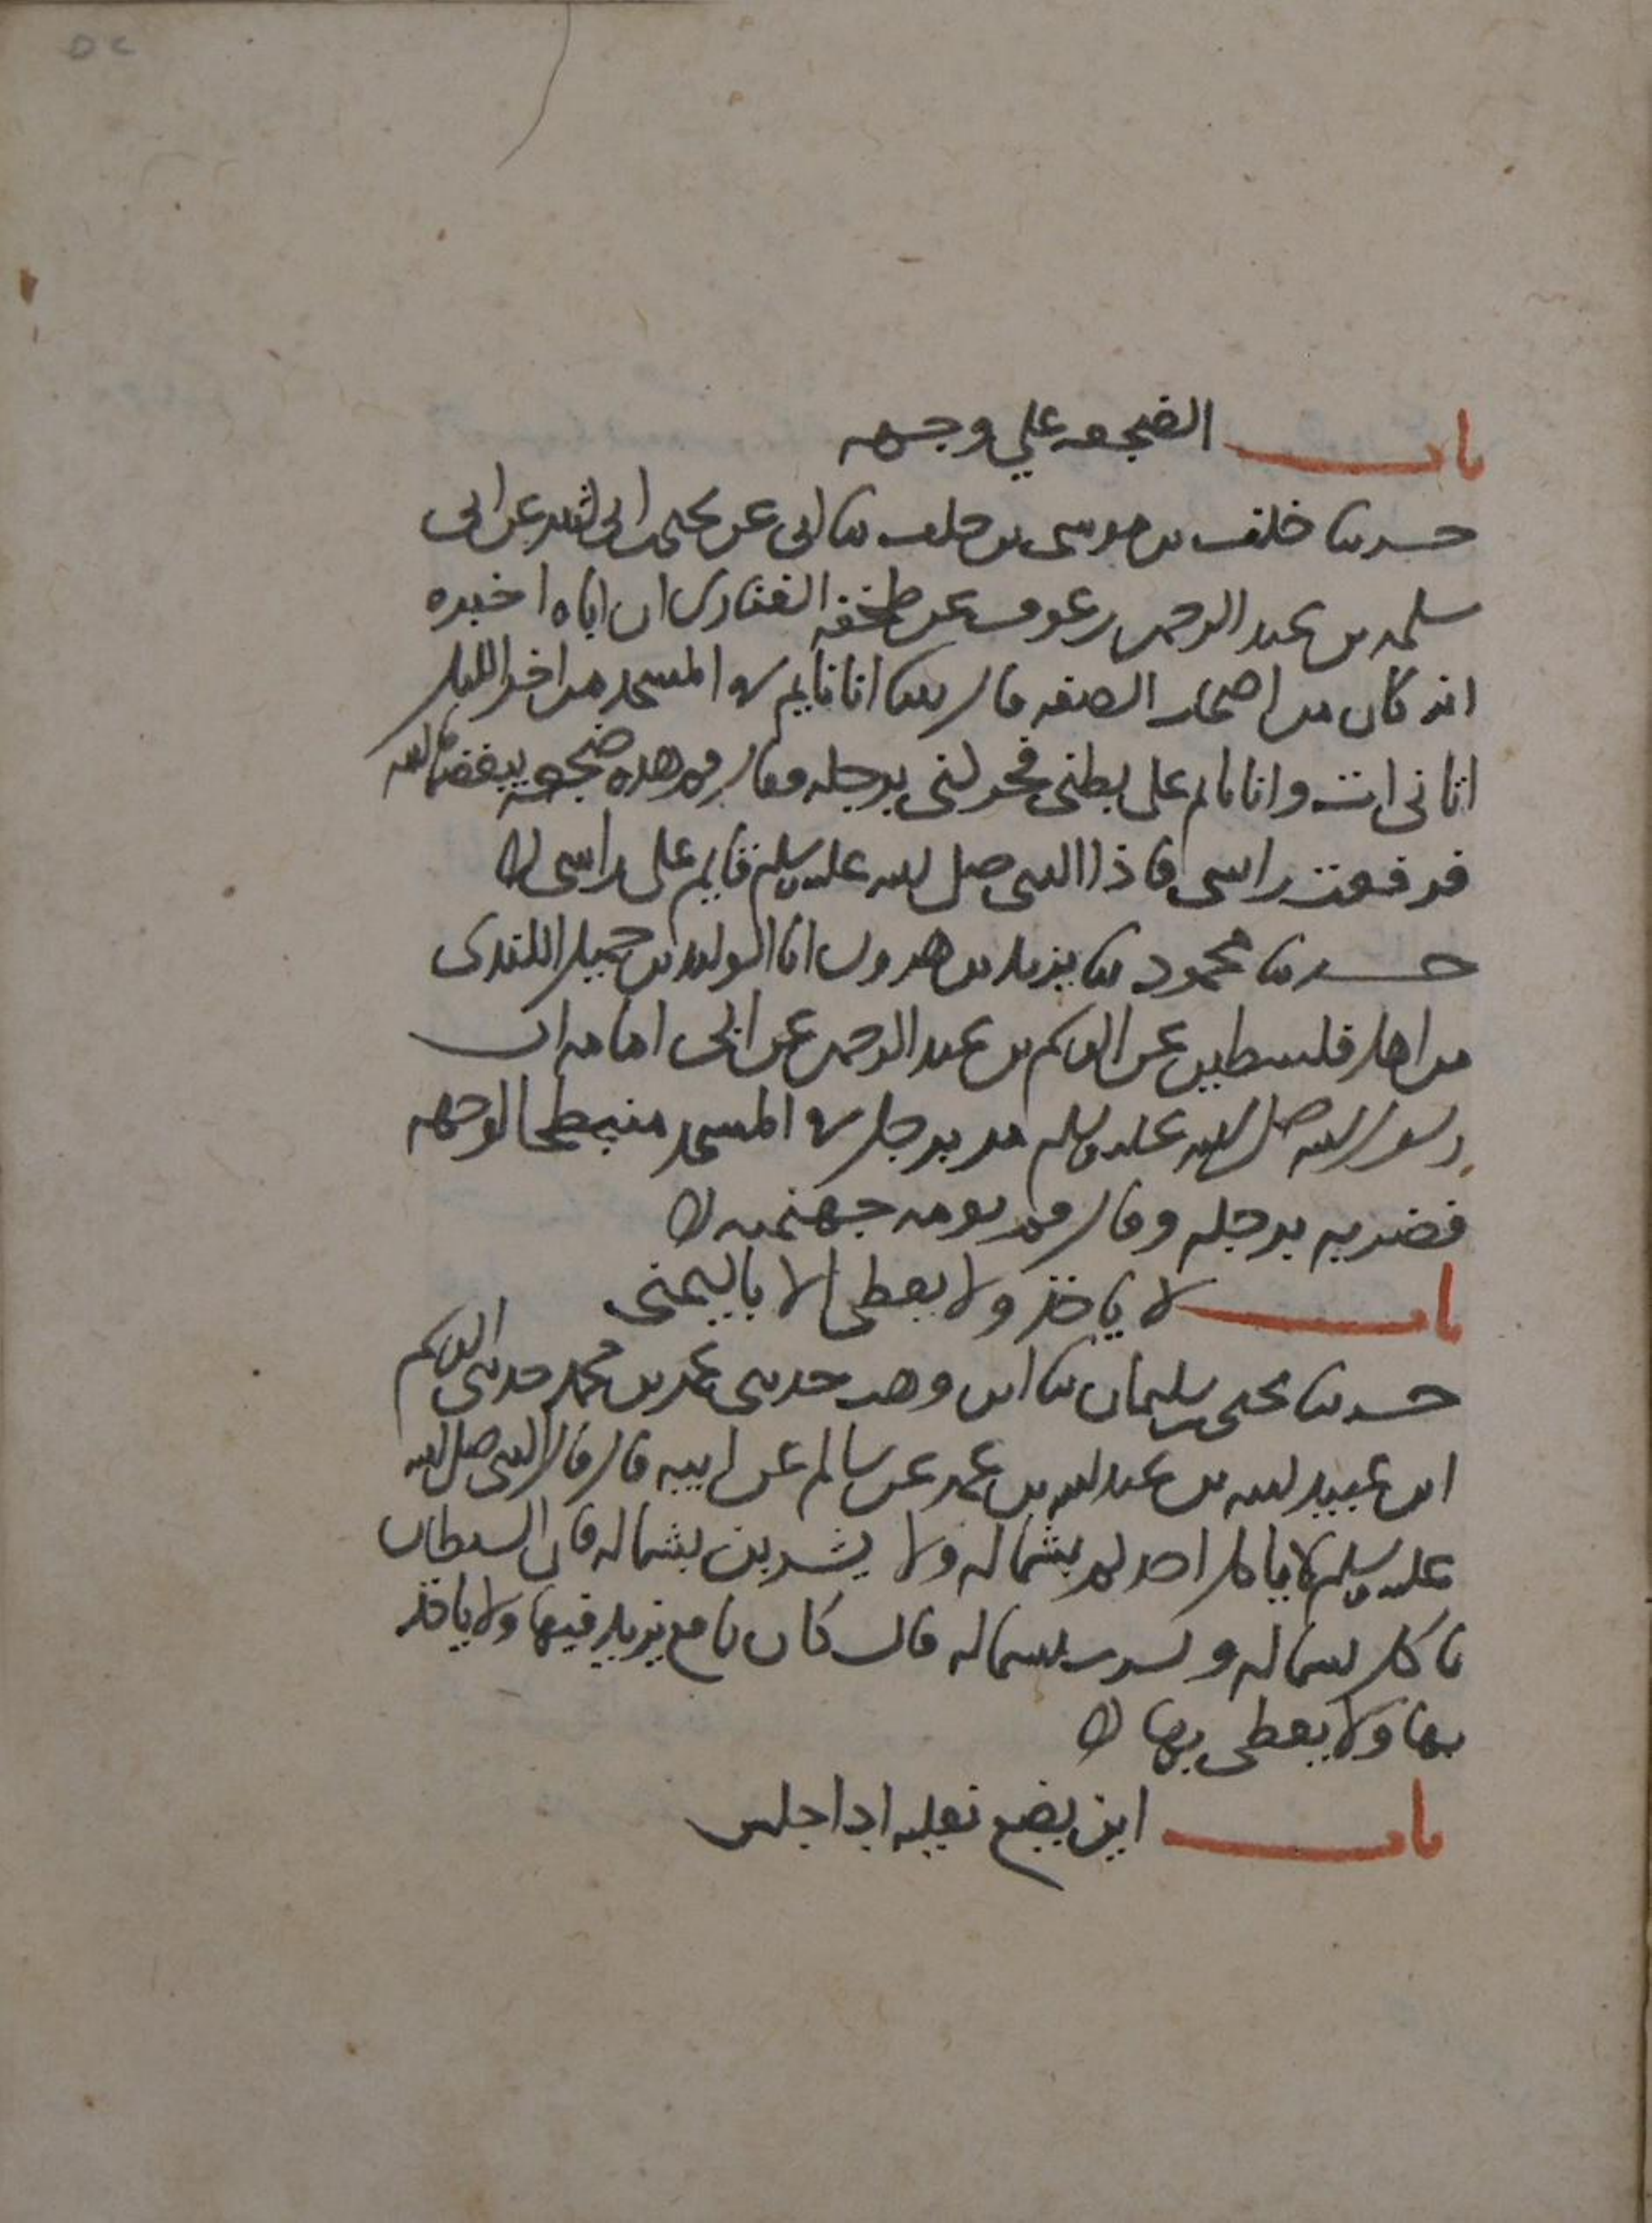 باب الضجعه علي وجهه
حدثنا خلف بن موسى بن خلف ثنا ابى عن يحيى بن ابى كثير عن ابى
سلمه بن عبد الرحمن بن عوف عن طخفه الغفارى ان اباه اخبره
انه كان من اصحاب الصفه قال بينا انا نايم في المسجد من اخر الليل
اتانى ات وانا نايم على بطنى فحركنى برجله وقال قم هذه ضجعه يبغضها الله
فرفعت راسى فاذا النبى صلى الله عليه وسلم قايم على راسى
حدثنا محمود ثنا يزيد بن هرون انا الوليد بن جميل الكندى
من اهل فلسطين عن القسم بن عبد الرحمن عن ابى امامه ان
رسول الله صلى الله عليه وسلم مر برجل في المسجد منبطحا لوجهه
فضربه برجله وقال قم نومه جهنميه
باب لا ياخذ ولا يعطى الا باليمنى
حدثنا يحيى بن سليمان ثنا ابن وهب حدثنى عمر بن محمد حدثنى القسم
ابن عبيد الله بن عبد الله بن عمر عن سالم عن ابيه قال قال النبى صلى الله
عليه وسلم لا ياكل احدكم بشماله ولا يشربن بشماله فان الشيطان
ياكل بشماله ويشرب بشماله قال كان نافع يزيد فيها ولا ياخذ
بها ولا يعطى بها
باب اين يضع نعليه اذا جلس